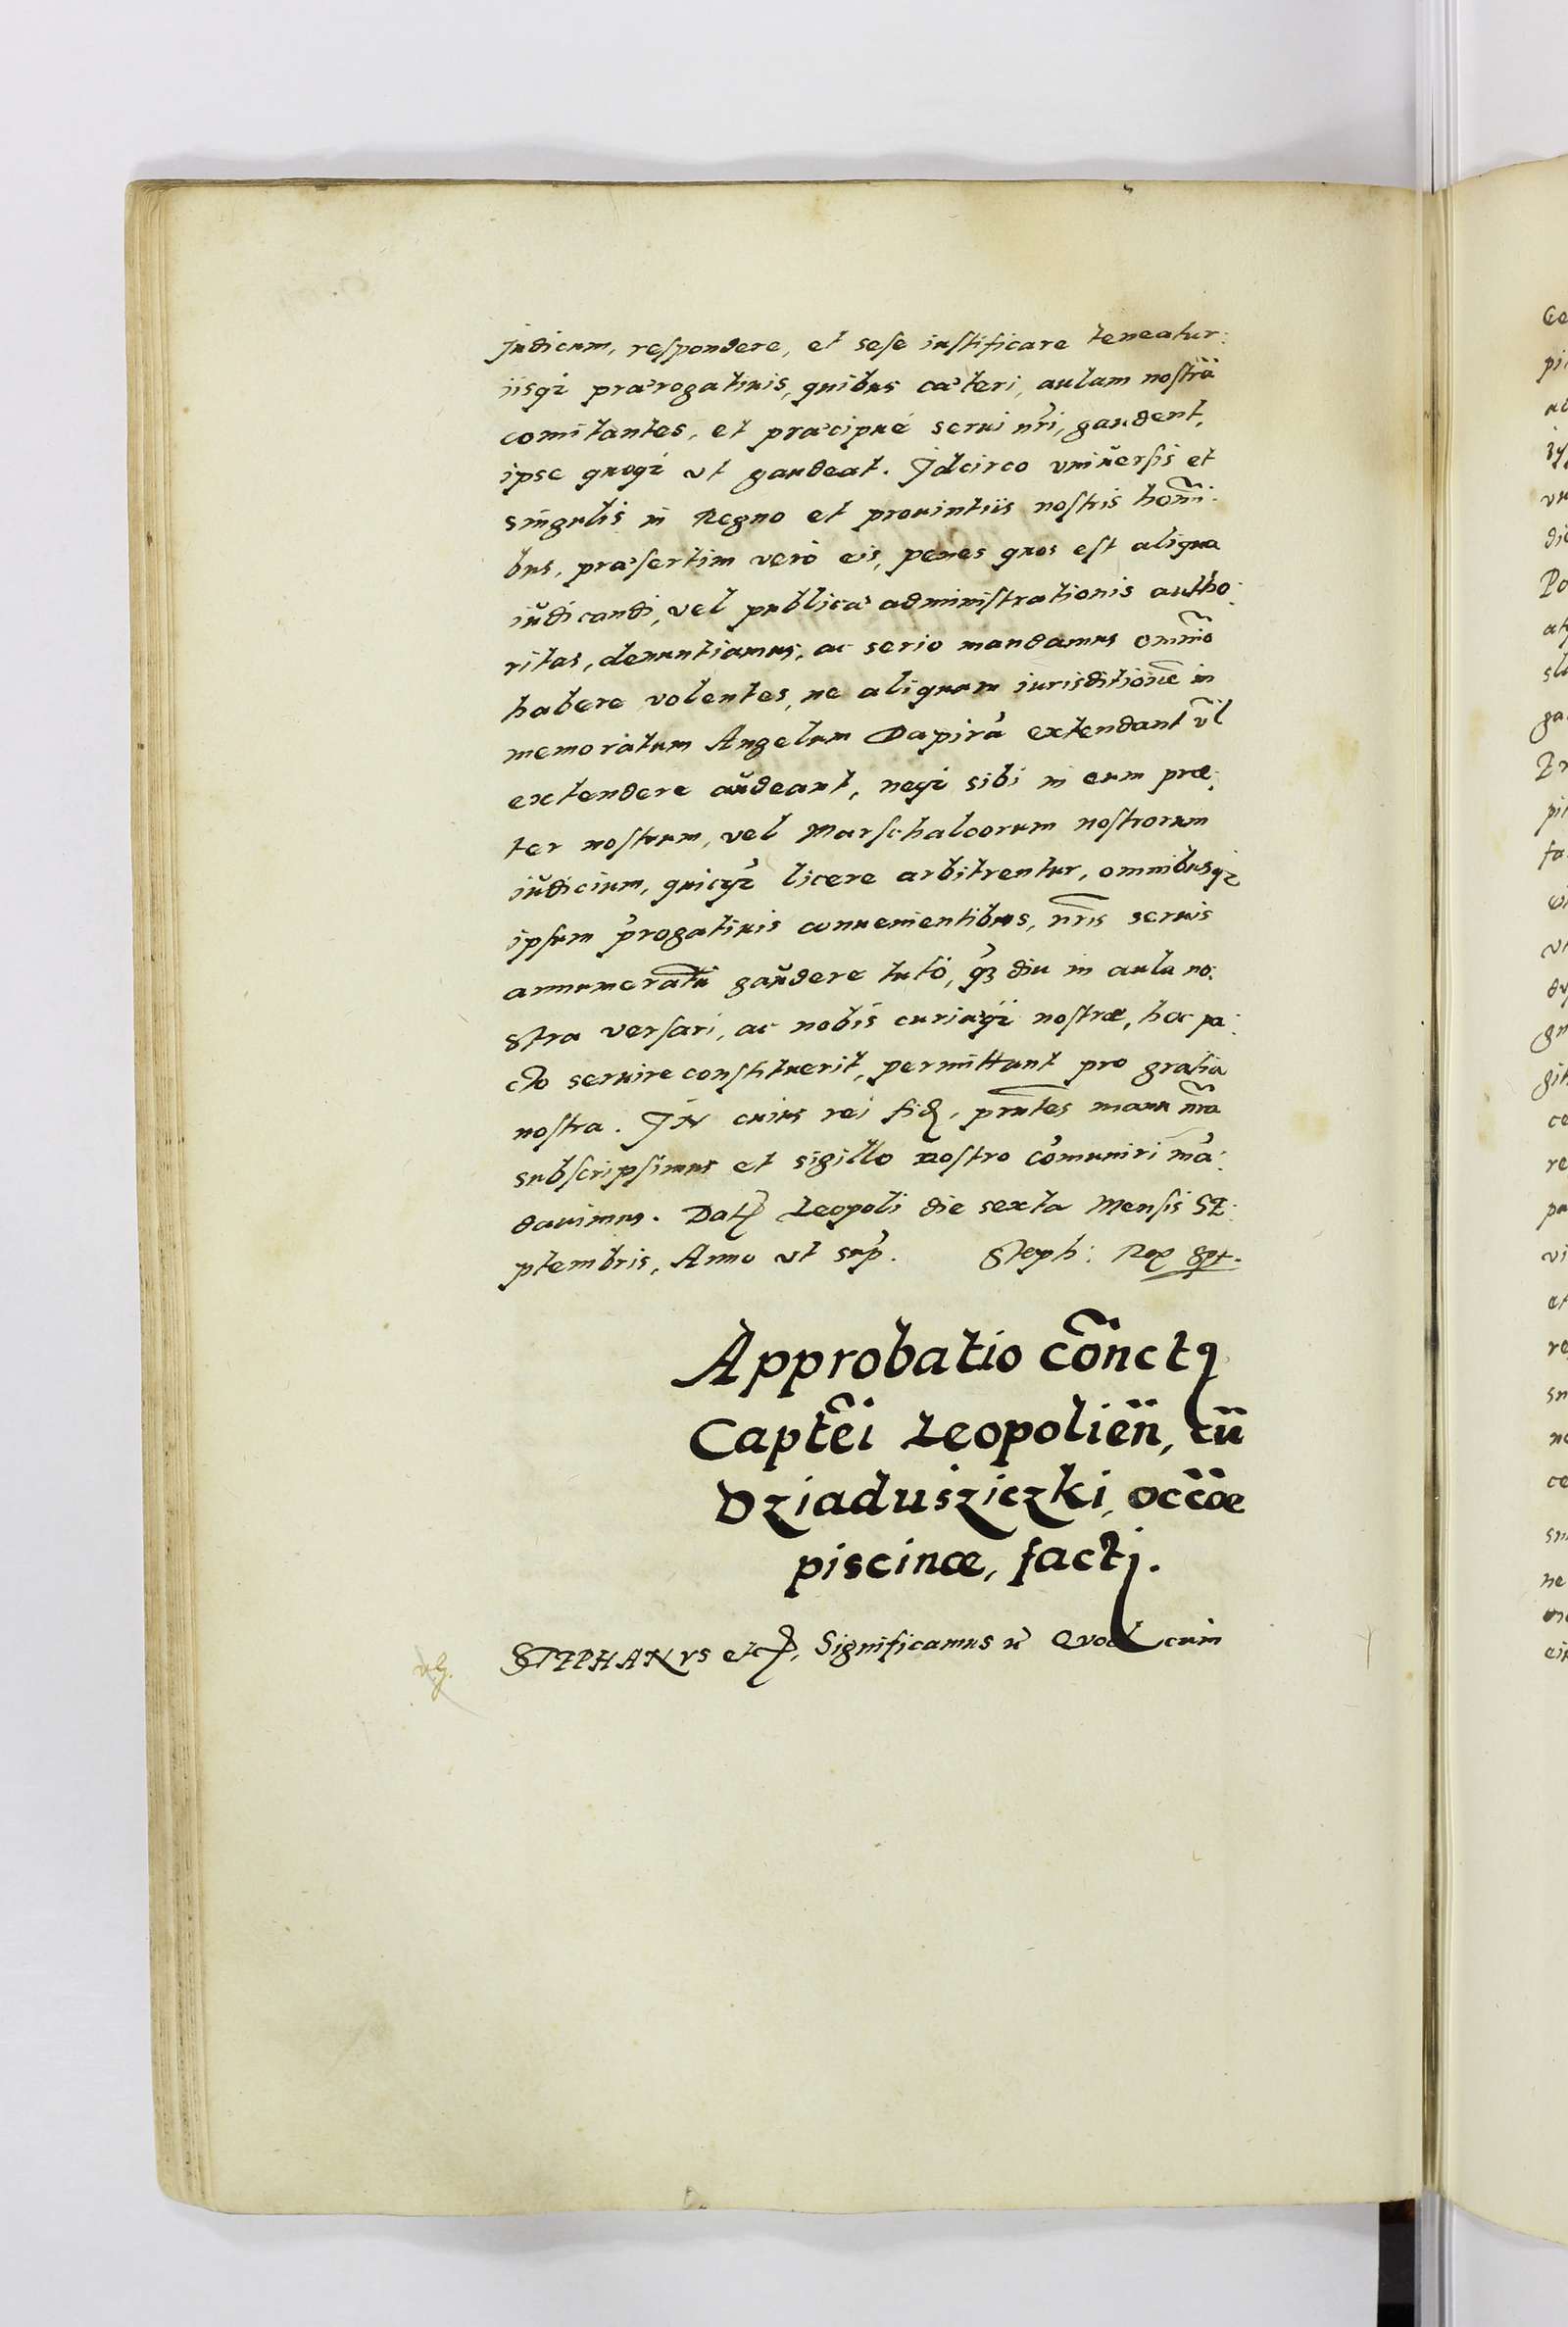 Judicum, respondere, et sese iustificare teneatur:
iisq₃ praerogatiuis, quibus caeteri, aulam nostrã
comitantes, et praecipué serui nr̃i, gaudent,
ipse quoq₃ vt gaudeat. Idcirco vniuersis et
singulis in Regno et prouintiis nostris homĩ:
bus, praesertim verò eis, penes quos est aliqua
iudicandi, vel publicae administrationis autho:
ritas, denuntiamus, ac serio mandamus omnĩo
habere volentes, ne aliquam iurisditionẽ in
memoratum Angelum Dapirã extendant vl̃
extendere audeant, neq₃ sibi in eum præ:
ter nostrum, vel Marschalcorum nostrorum
iudicium, quicq₃ licere arbitrentur, omnibusq₃
ipsum p̃rogatiuis conuenientibus, nr̃is seruis
annumeratũ gaudere tutò, q̃₃ diu in aula no:
stra versari, ac nobis curiaeq₃ nostræ, hoc pa:
cto seruire constituerit, permittant pro gratia
nostra. IN cuius rei fid, pñtes manu nr̃a
subscripsimus et sigillo nostro cõmuniri mã:
dauimus. Dat Leopoli die sexta Mensis SE:
ptembris, Anno vt sup̃. Steph: Rex sst.
Approbatio cõnctꝯ
Captẽi Leopolieñ, cũ
Dziadusziczki, occõe
piscinæ, facti.
STEPHANVS etc, Significamus rc̃ Quod cum